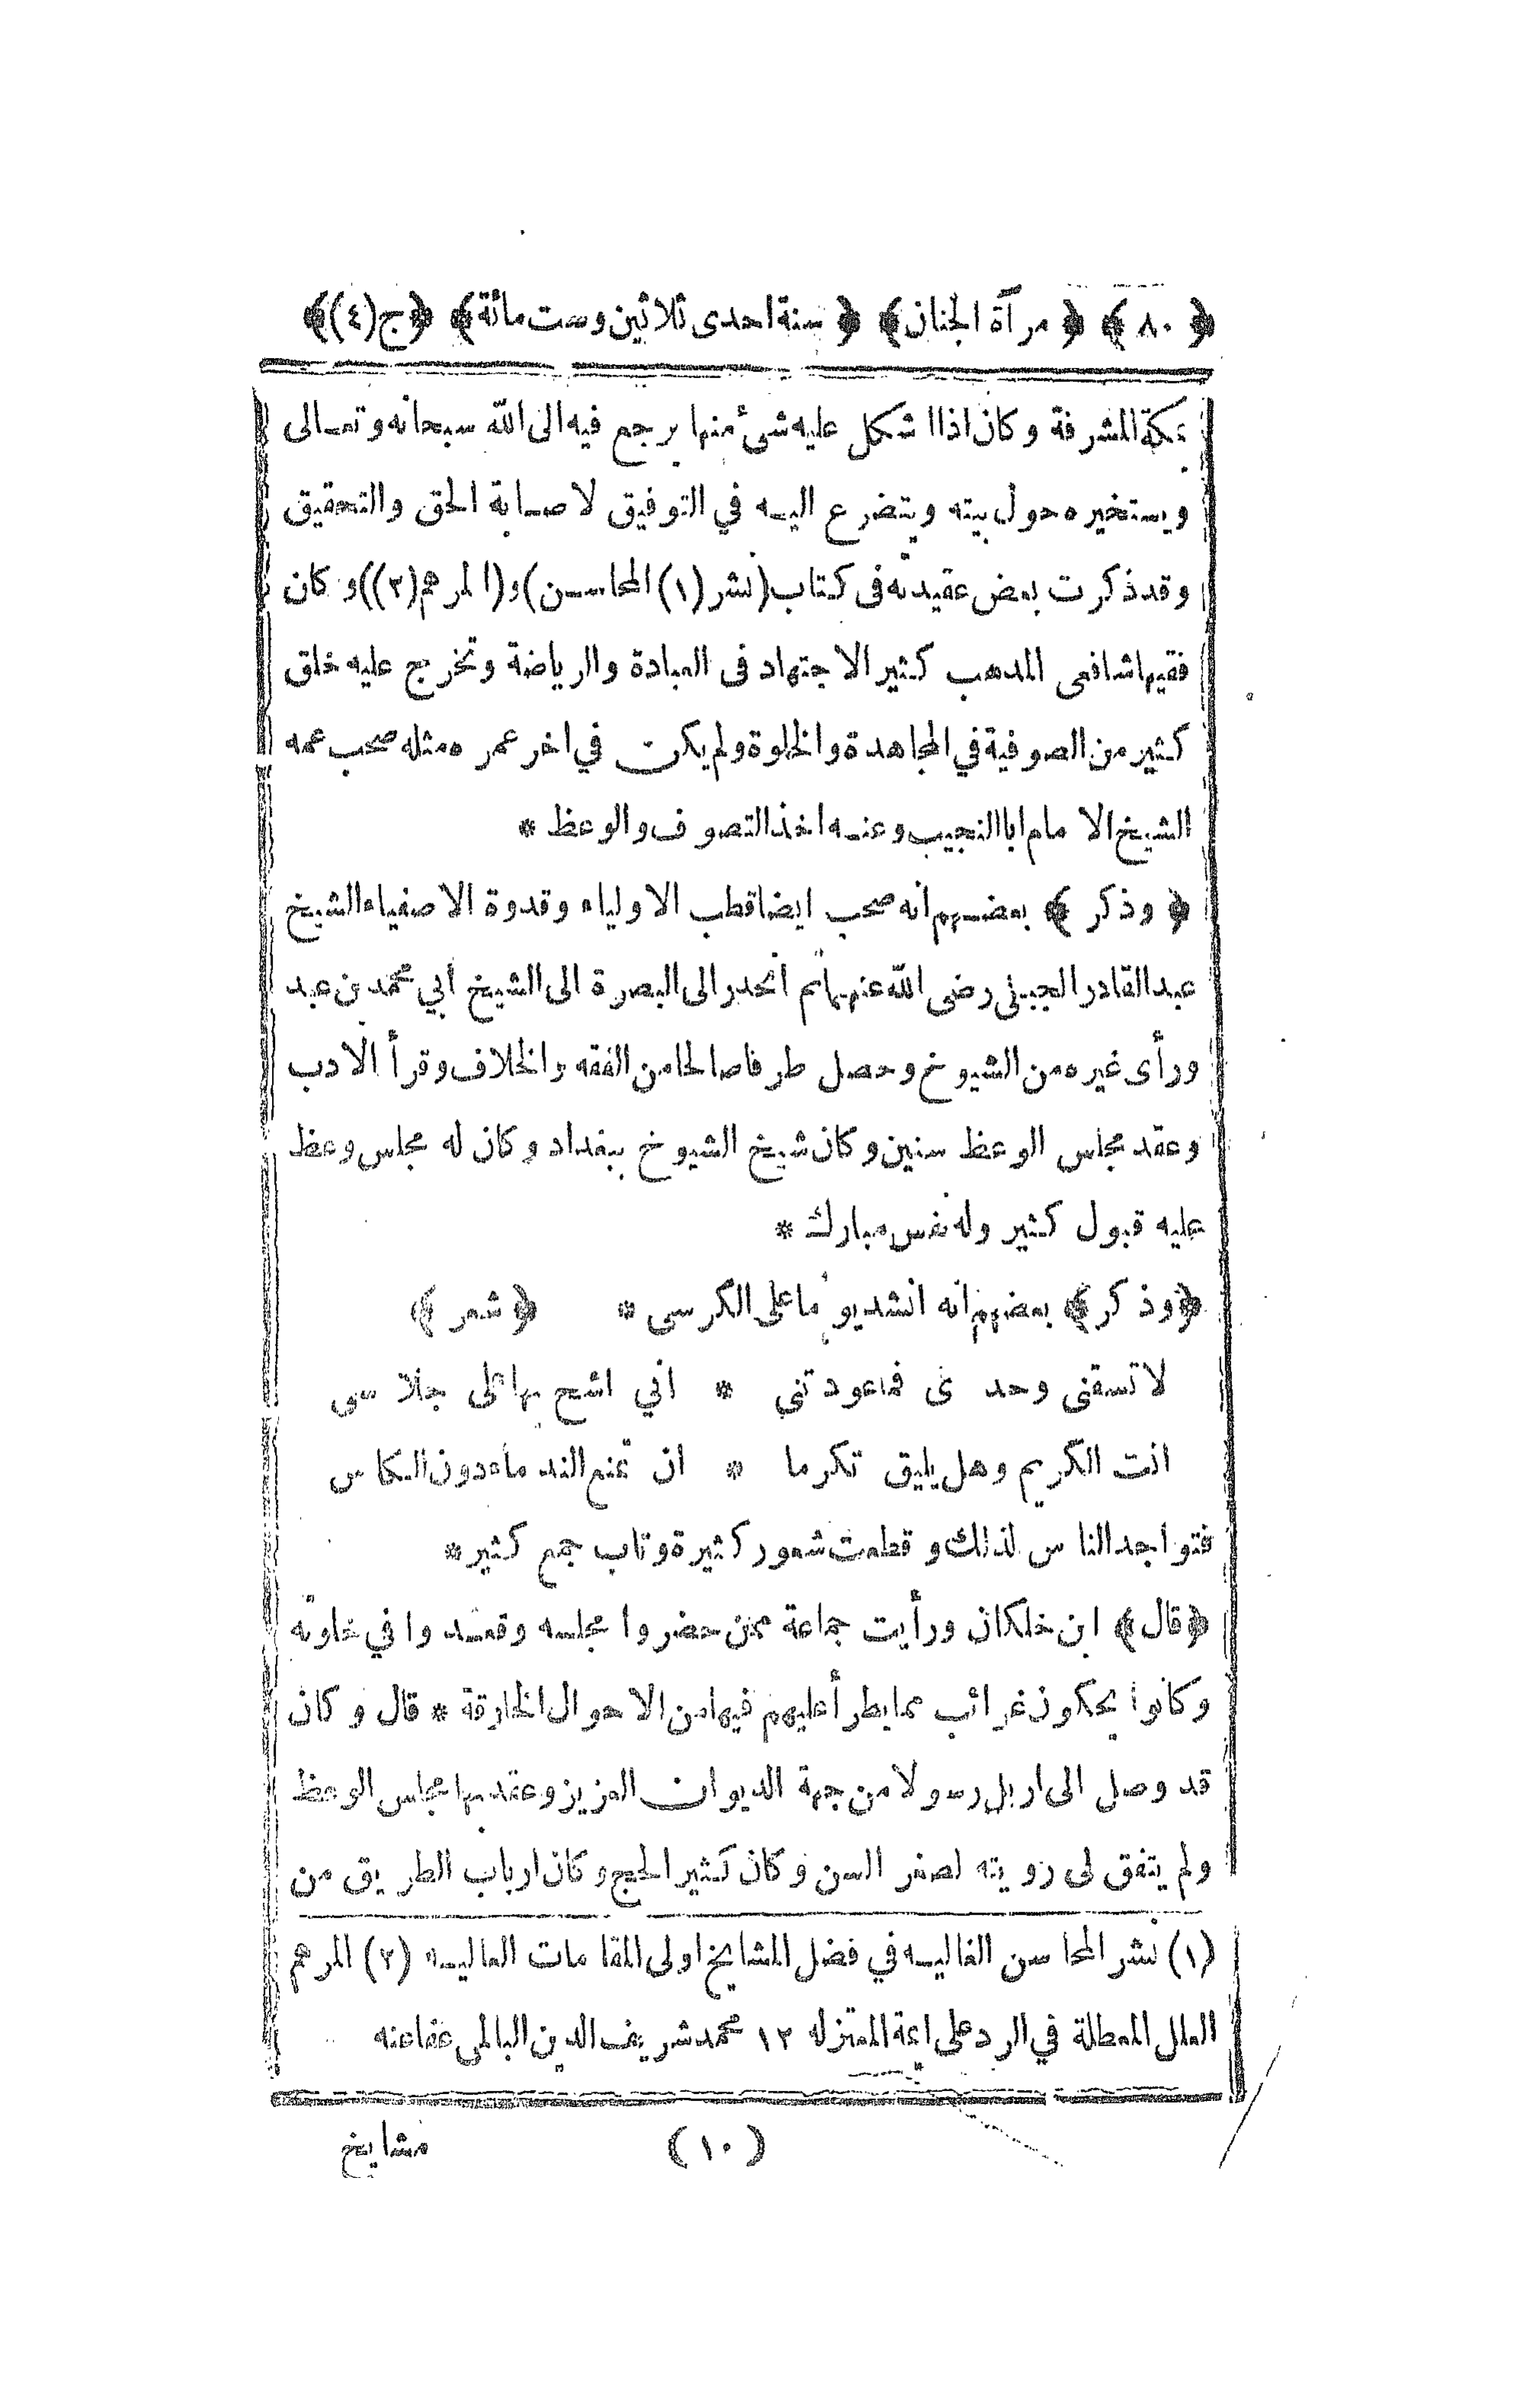 ﴿ ٨٠ ﴾ ﴿ مرآة الجنان ﴾ ﴿ سنة احدى ثلاثين وست مائة ﴾ ﴿ ج (٤) ﴾
بمكة المشرفة وكان اذا اشكل عليه شئ منها يرجع فيه الى الله سبحانه وتعالى
ويستخيره حول بيته ويتضرع اليه في التوفيق لاصابة الحق والتحقيق
وقد ذكرت بعض عقيدته فى كتاب (نشر (١) المحاسن) و (المرهم (٢)) وكان
فقيها شافعى المذهب كثير الاجتهاد فى العبادة والرياضة وتخرج عليه خلق
كثير من الصوفية في المجاهدة والخلوة ولم يكن في اخر عمره مثله صحب عمه
الشيخ الامام ابا النجيب وعنه اخذ التصوف والوعظ *
﴿ وذكر ﴾ بعضهم انه صحب ايضا قطب الاولياء وقدوة الاصفياء الشيخ
عبد القادر الجيلى رضى الله عنهما ثم انحدر الى البصرة الى الشيخ أبي محمد بن عبد
ورأى غيره من الشيوخ وحصل طرفا صالحا من الفقه والخلاف وقرأ الادب
وعقد مجلس الوعظ سنين وكان شيخ الشيوخ ببغداد وكان له مجلس وعظ
عليه قبول كثير وله نفس مبارك *
﴿ وذكر ﴾ بعضهم انه انشد يوما على الكرسى * ﴿ شعر ﴾
لا تسقنى وحدى فما عودتني * اني اشح بها على جلاسى
انت الكريم وهل يليق تكرما * ان تمنع الندماء دون الكاس
فتواجد الناس لذلك وقطعت شعور كثيرة وتاب جمع كثير *
﴿ قال ﴾ ابن خلكان ورأيت جماعة ممن حضروا مجلسه وقعدوا في خلوته
وكانوا يحكون غرائب مما يطرأ عليهم فيها من الاحوال الخارقة * قال وكان
قد وصل الى اربل رسولا من جهة الديوان العزيز وعقد بها مجلس الوعظ
ولم يتفق لى رويته لصغر السن وكان كثير الحج وكان ارباب الطريق من
(١) نشر المحاسن الغاليه في فضل المشايخ اولى المقامات العاليه (٢) المرهم
العلل المعطلة في الرد على ايمة المعتزله ١٢ محمد شريف الدين البالمى عفا عنه
(١٠)
مشايخ